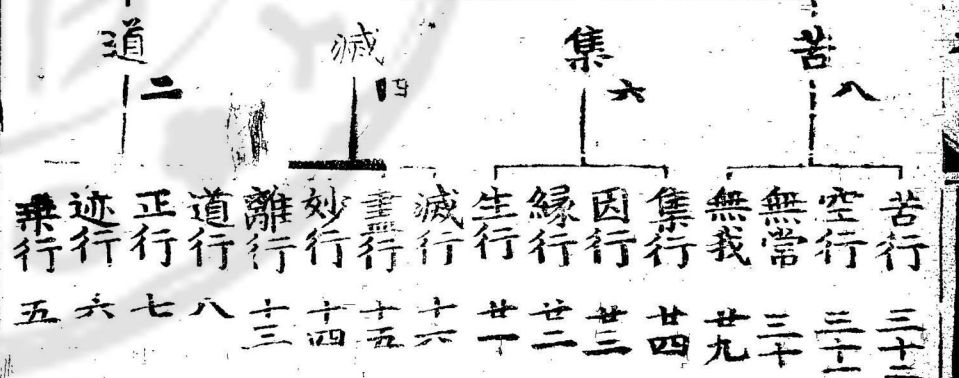 苦 八
集 六
滅 四
道 二
苦行 三十二
空行 三十一
無常 三十
無我 廿九
集行 廿四
因行 廿三
緣行 廿二
生行 廿一
滅行 十六
盡行 十五
妙行 十四
離行 十三
道行 八
正行 七
迹行 六
乗行 五